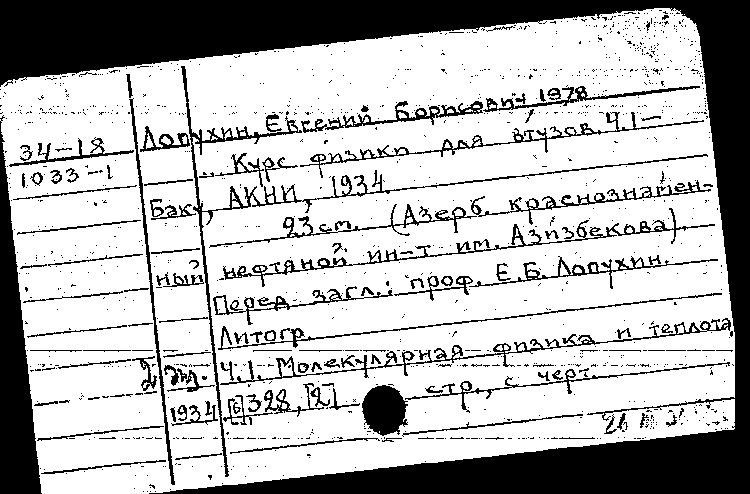 Лопухин, Евгений Борисович 1978
34-18
1033-1
... Курс физики для втузов. Ч.1—
Баку, АКНИ, 1934
23 см. (Азерб. краснознамен-
ный нефтяной ин-т им. Азизбекова).
Перед загл.: проф. Е.Б. Лопухин.
Литогр.
2 экз. Ч.1. Молекулярная физика и теплота
1934 [6], 328, [2] стр., с черт.